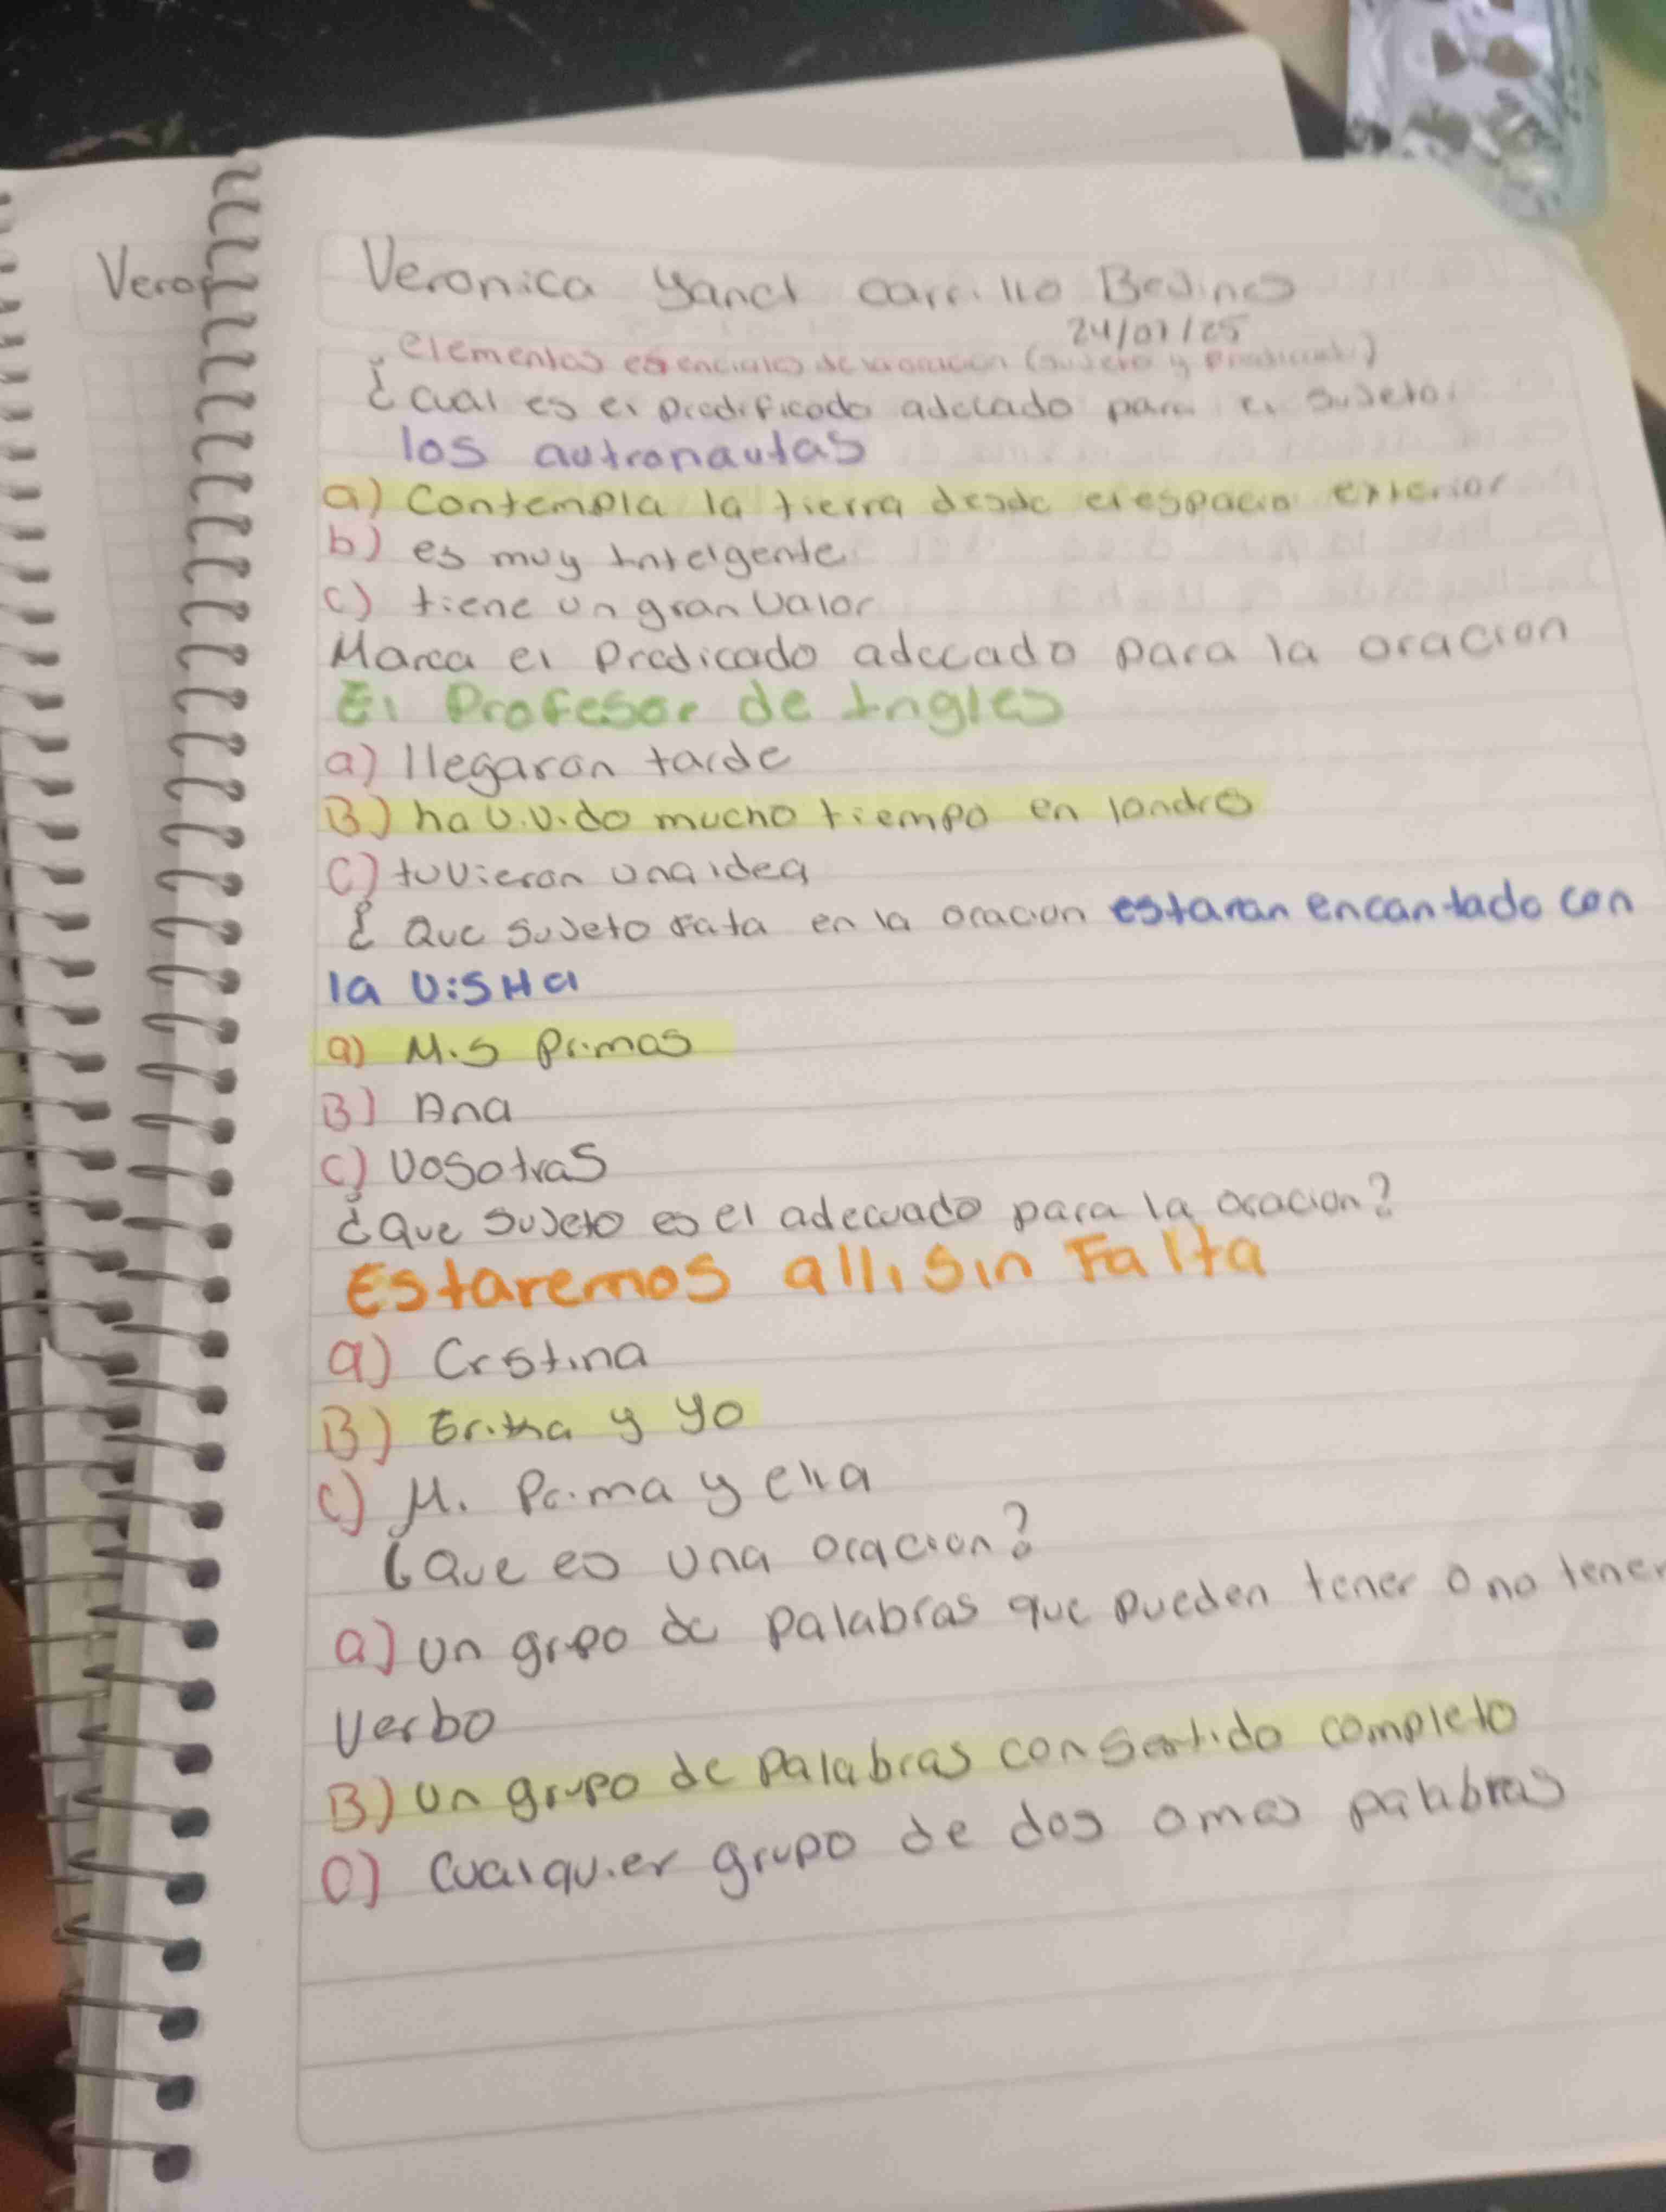 Vero
Veronica Yanct Carrillo Bedines
24/07/25
elementos esenciales de la oracion (sujeto y predicado)
¿cual es el predificodo adecado para el sujeto.
los autronautas
a) Contempla la tierra desde el espacio exterior
b) es muy Intelgente
c) tiene un gran valor
Marca el Predicado adecado para la oracion
El Profesor de Ingles
a) llegaron tarde
B) ha vivido mucho tiempo en londres
C) tuvieron una idea
¿Que sujeto Fata en la oracion estaran encantado con
la visita
a) Mis Primas
B) Ana
c) Vosotras
¿Que sujeto es el adecuado para la oracion?
Estaremos alli sin Falta
a) Crstina
B) y yo
c) Mi Prima y ella
¿Que es una oracion?
a) un grupo de palabras que pueden tener o no tener
Verbo
B) un grupo de Palabras con sentido completo
C) cualquier grupo de dos o mas palabras